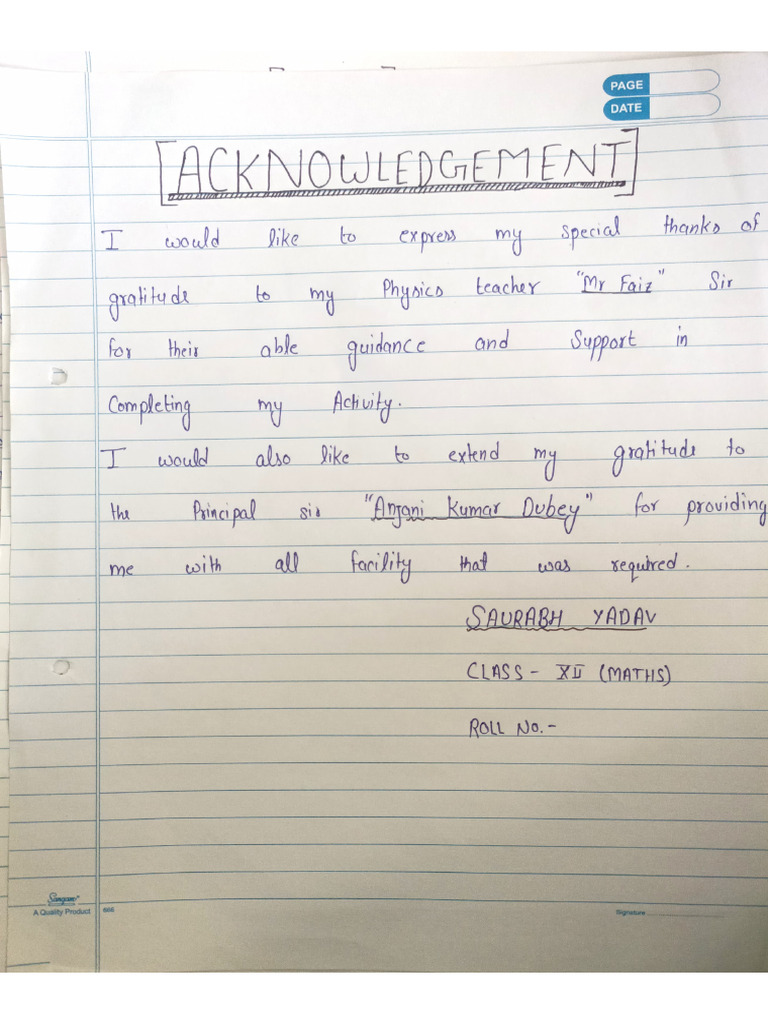 PAGE
DATE
[ACKNOWLEDGEMENT]
I would like to express my special thanks of
gratitude to my Physics teacher "Mr Faiz" Sir
for their able guidance and Support in
Completing my Activity.
I would also like to extend my gratitude to
the Principal sir "Anjani Kumar Dubey" for providing
me with all facility that was required.
SAURABH YADAV
CLASS - XII (MATHS)
ROLL No. -
Sangam
A Quality Product 666
Signature